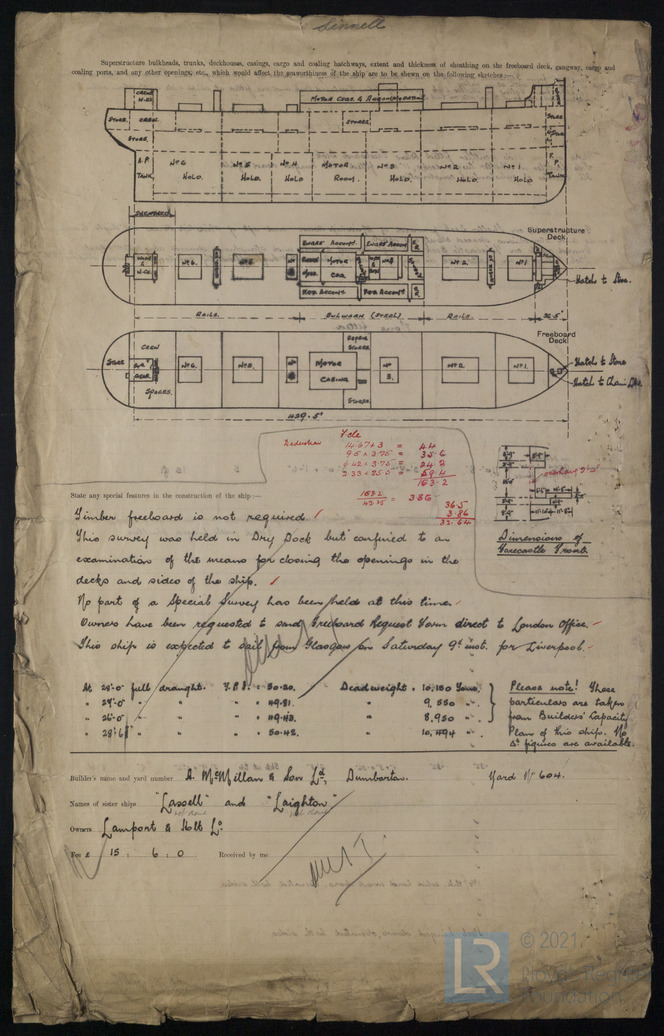 Linnell
Superstructure bulkheads, trunks, deckhouses, casings, cargo and coaling hatchways, extent and thickness of sheathing on the freeboard deck, gangway, cargo and
coaling ports, and any other openings, etc., which would affect the seaworthiness of the ship are to be shewn on the following sketches:—
CREW
MOTOR CSG. & ACCOMMODATION
STORE. CREW
STORES.
STORE.
A.P. TANK
No 6 HOLD.
No 5 HOLD.
No 4 HOLD
MOTOR ROOM.
No 3 HOLD.
No 2 HOLD.
No 1 HOLD
F.P. TANK
SHEATHED
Superstructure
Deck
ENGRS' ACCOMT. ENGRS' ACCOMT.
No 6.
No 5.
MOTOR
CSG.
No 2.
No 1
Hatch to Store.
RAILS.
BULWARK (STEEL)
RAILS.
32.5'
Freeboard
Deck
CREW
STORE
SPARES.
No 6.
No 5.
MOTOR
CASING
STORES.
No 3.
No 2.
No 1.
Hatch to Store
Hatch to Chain Lkr.
429.5'
Fcle
Deduction 14.67 x 3 = 44
9.5 x 3.75 = 35.6
6.42 x 3.75 = 24.2
2.33 x 25.5 = 59.4
163.2
163.2 / 42.25 = 3.86
36.5
3.86
32.64
Dimensions of
Forecastle Front.
State any special features in the construction of the ship:—
Timber freeboard is not required.
This survey was held in Dry Dock but confined to an
examination of the means for closing the openings in the
decks and sides of the ship.
No part of a Special Survey has been held at this time.
Owners have been requested to send Freeboard Request Form direct to London Office.
This ship is expected to sail from Glasgow on Saturday 9th inst. for Liverpool.
At 28'-0" full draught. T.P.I. = 50.20. Deadweight = 10,150 Tons.
" 27'-0" " " " = 49.81. " 9,550 "
" 26'-0" " " " = 49.43. " 8,950 "
" 28'-6" " " " = 50.42. " 10,494 "
Please note! These
particulars are taken
from Builders' Capacity
Plan of this ship. No
Δt figures are available.
Builder's name and yard number A. McMillan & Son Ld, Dumbarton. Yard No 604.
Names of sister ships "Lassell" and "Leighton"
Owners Lamport & Holt Ld.
Fee £ 15 : 6 : 0 Received by me
LR
© 2021
Lloyd's Register
Foundation